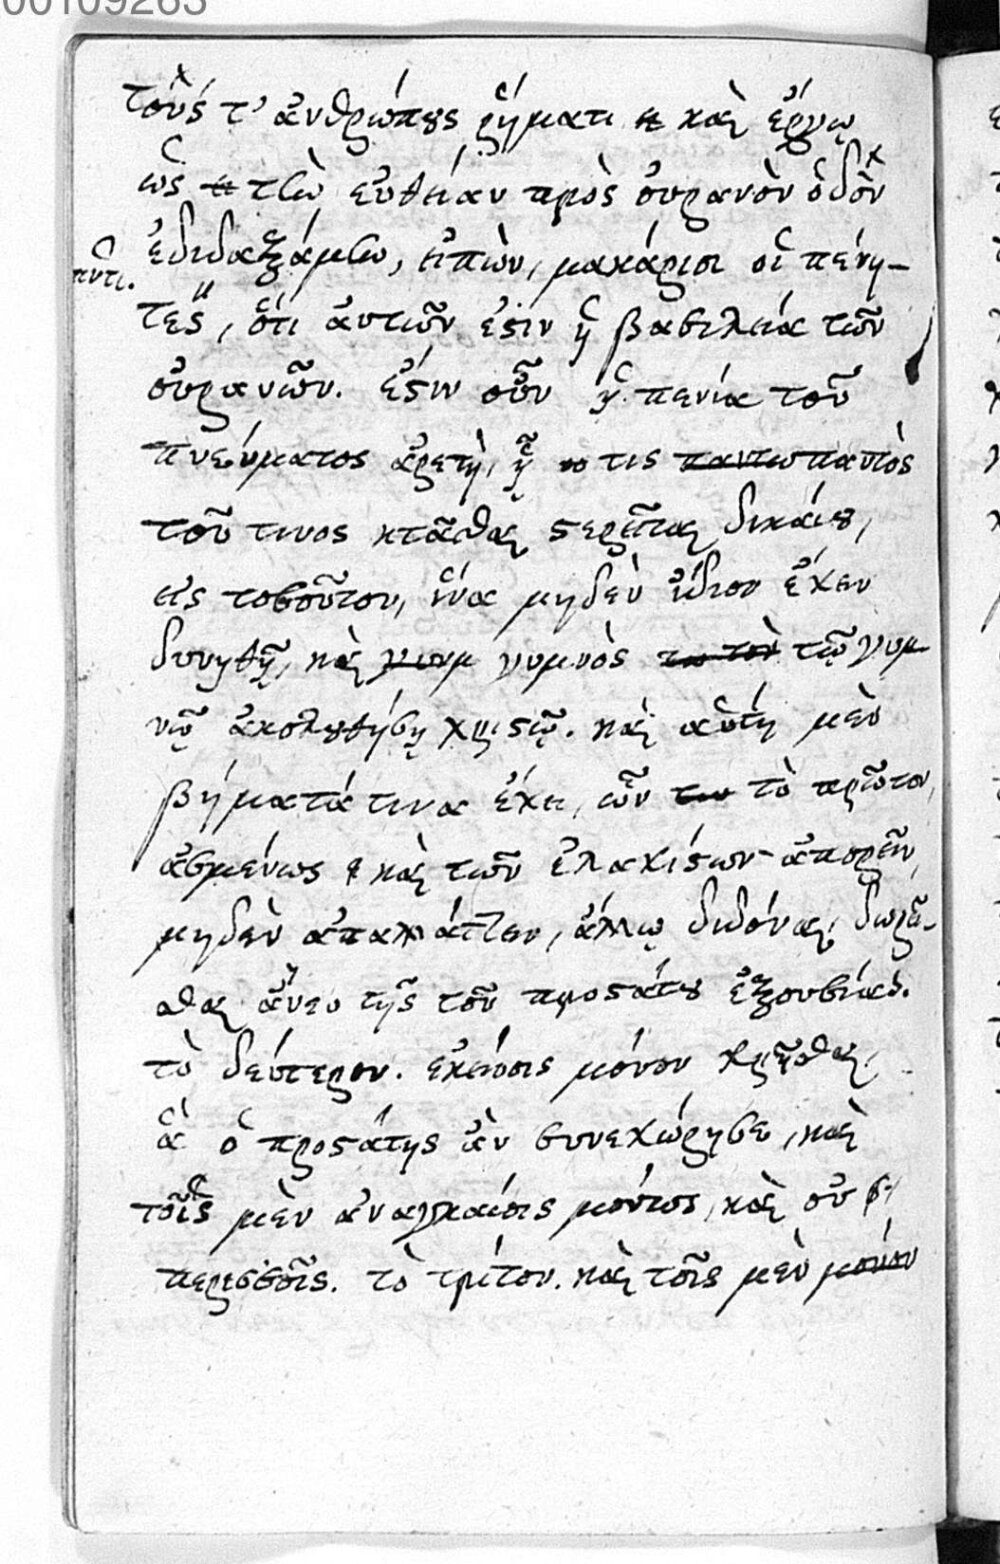 00109263
τοὺς τ' ἀνθρώπους ῥήματι καὶ ἔργῳ
ὡς τὴν εὐθείαν πρὸς οὐρανὸν ὁδὸν
ἐδιδαξάμην, εἰπὼν, μακάριοι οἱ πένη-
πντι.
τες, ὅτι αὐτῶν ἐστιν ἡ βασιλεία τῶν
οὐρανῶν. ἐστιν οὖν ἡ πενία τοῦ
πνεύματος ἀρετὴ, ᾗ τις παντὸς
τοῦ τινος κτᾶσθαι στερεῖται δικαίου,
εἰς τοσοῦτον, ἵνα μηδὲν ἴδιον ἔχειν
δυνηθῇ, καὶ γυμνὸς τῷ γυμ-
νῷ ἀκολουθήσῃ χριστῷ. καὶ αὐτή μὲν
βήματά τινα ἔχει, ὧν τὸ πρῶτον,
ἀσμένως καὶ τῶν ἐλαχίστων ἀπορεῖν,
μηδὲν ἀπαλλάττειν, ἄλλῳ διδόναι, δωρεῖ-
σθαι ἄνευ τῆς τοῦ προστάτου ἐξουσίας.
τὸ δεύτερον. ἐκείνοις μόνον χρῆσθαι,
ἃ ὁ προστάτης ἂν συνεχώρησεν, καὶ
τοῖς μὲν ἀναγκαίοις μόνοις, καὶ οὐ
περισσοῖς. τὸ τρίτον. καὶ τοῖς μὲν μόνον